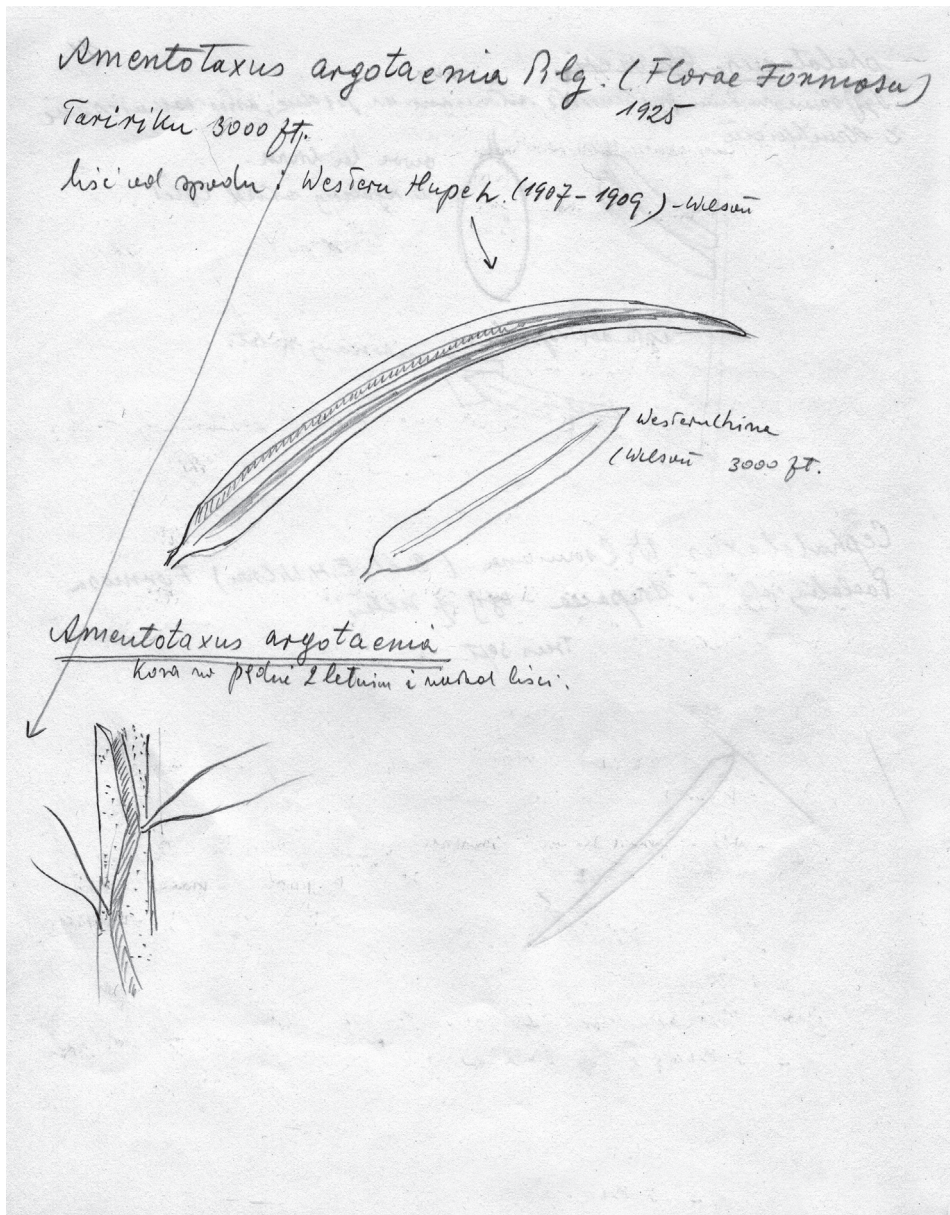 Amentotaxus argotaenia Plg. (Florae Formosa)
1925
Taririku 3000 ft.
liść od spodu : Western Hupeh. (1907-1909.) - Wilson
Western China
(Wilson 3000 ft.
Amentotaxus argotaenia
Kora na pędzie 2 letnim i nasad liści.